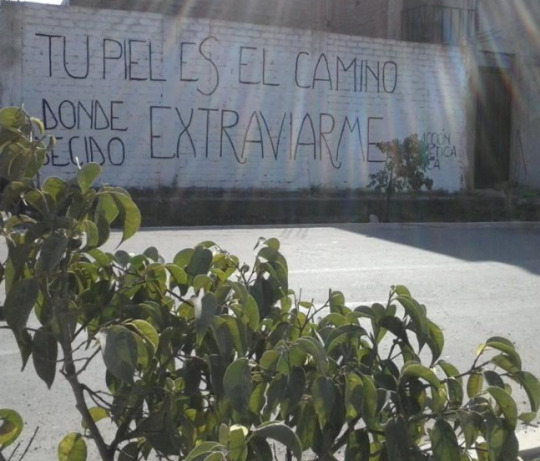 TU PIEL ES EL CAMINO
DONDE
DECIDO EXTRAVIARME
ACCIÓN
POÉTICA